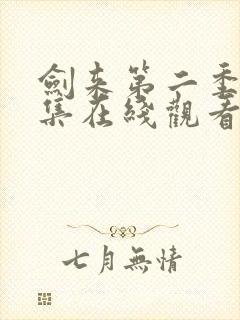 劍來第二季
集在綫觀看
七月無情